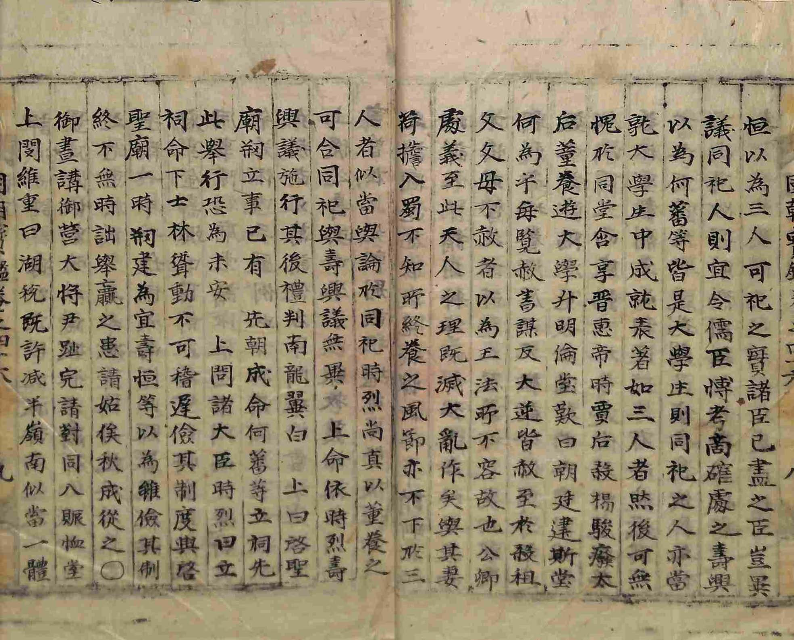 恒以為三人可祀之賢諸臣已盡之臣豈異
議同祀人則宜令儒臣博考商確處之壽興
以為何蕃等皆是大學生則同祀之人亦當
就大學生中成就表著如三人者然後可無
愧於同堂合享晋惠帝時賈后殺楊駿廢太
后董養遊大學升明倫堂歎曰朝廷建斯堂
何為乎每覽赦書謀反大逆皆赦至於殺祖
父父母不赦者以為王法所不容故也公卿
處義至此天人之理既滅大亂作矣與其妻
荷擔入蜀不知所終養之風節亦不下於三
人者似當輿論於同祀時烈尚真以董養之
可合同祀與壽興議無異 上命依時烈壽
興議施行其後禮判南龍翼白 上曰啓聖
廟刱立事已有 先朝成命何蕃等立祠先
此舉行恐為未安 上問諸大臣時烈曰立
祠命下士林聳動不可稽遲儉其制度與啓
聖廟一時刱建為宜壽恒等以為雖儉其制
終不無時詘舉贏之患請姑俟秋成從之○
御晝講御營大將尹趾完請對同入賑恤堂
上閔維重曰湖稅既許減半嶺南似當一體